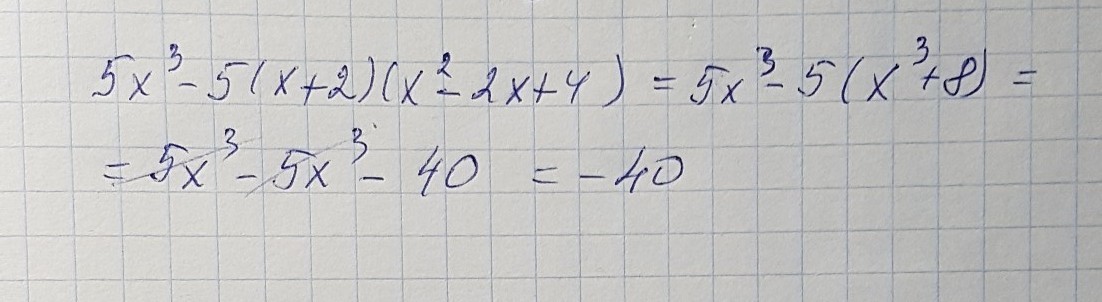 5x³ - 5(x+2)(x² - 2x+4) = 5x³ - 5(x³+8) =
= 5x³ - 5x³ - 40 = -40